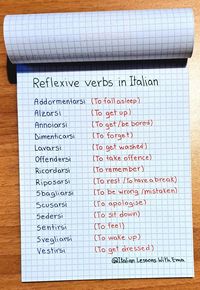 Reflexive verbs in Italian
Addormentarsi (To fall asleep)
Alzarsi (To get up)
Annoiarsi (To get/be bored)
Dimenticarsi (To forget)
Lavarsi (To get washed)
Offendersi (To take offence)
Ricordarsi (To remember)
Riposarsi (To rest/To have a break)
Sbagliarsi (To be wrong/mistaken)
Scusarsi (To apologise)
Sedersi (To sit down)
Sentirsi (To feel)
Svegliarsi (To wake up)
Vestirsi (To get dressed)
@Italian Lessons With Ema